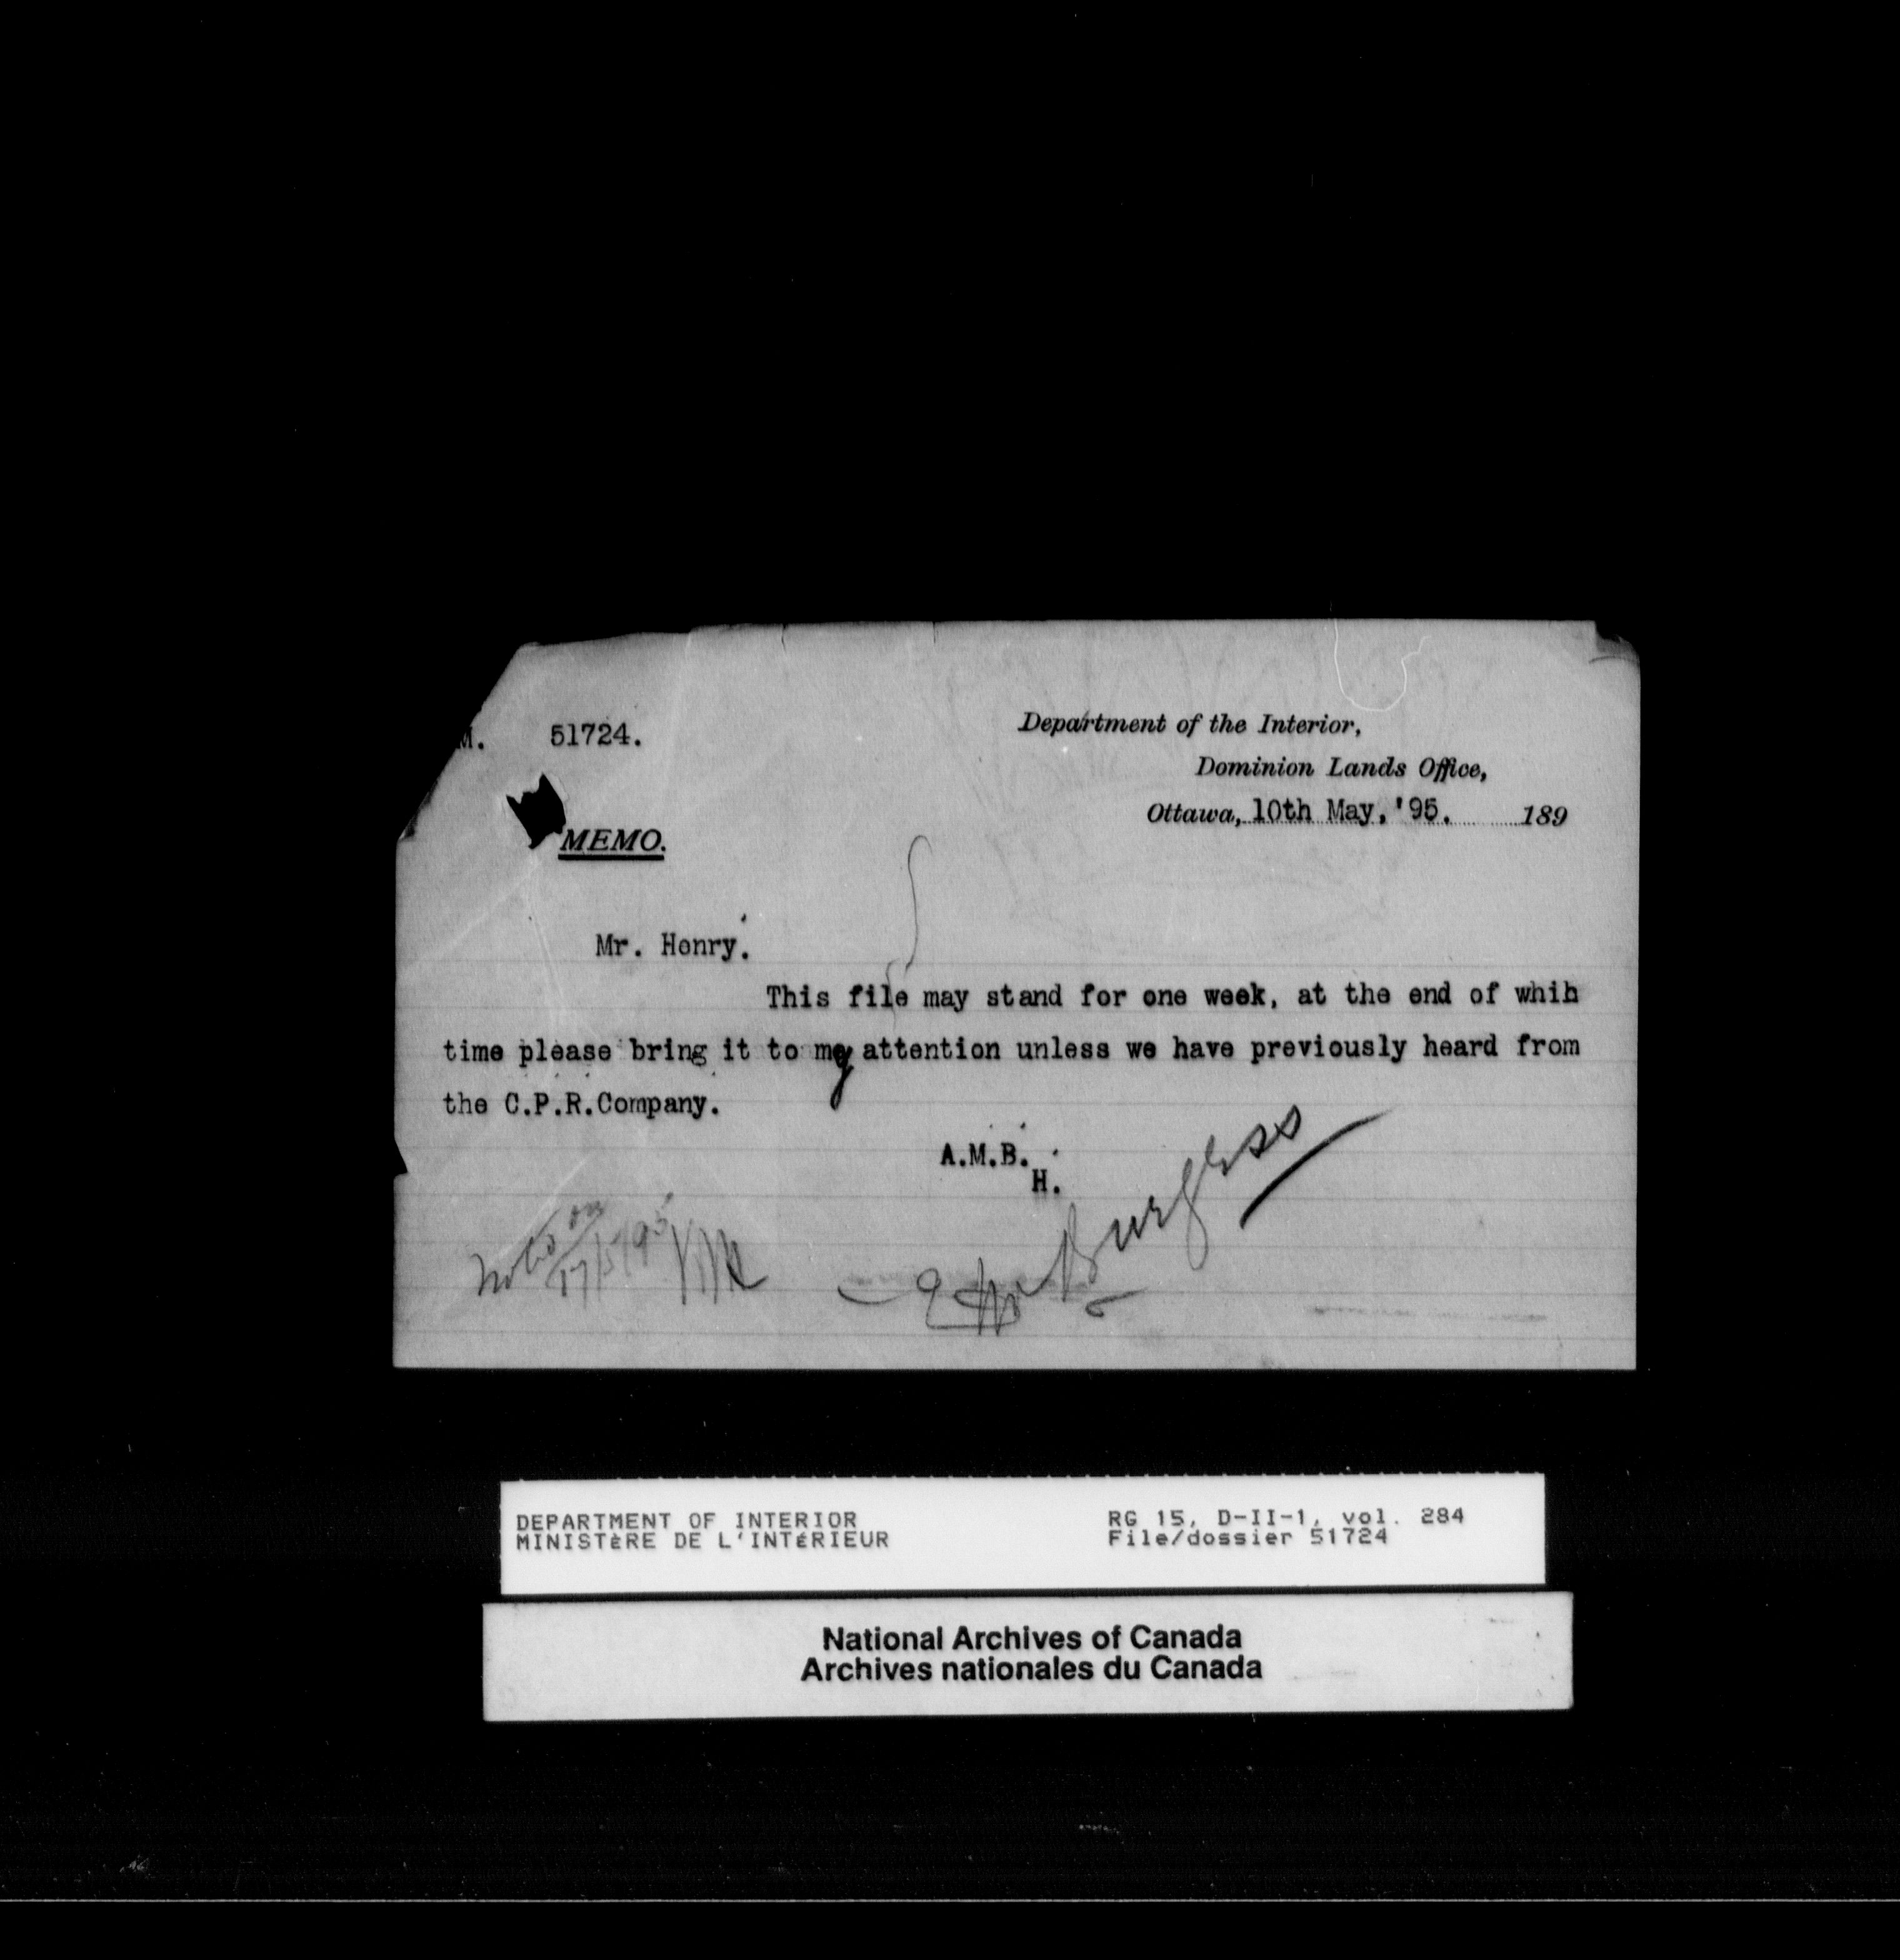 M. 51724.
Department of the Interior,
Dominion Lands Office,
Ottawa, 10th May, '95. 189
MEMO.
Mr. Henry.
This file may stand for one week, at the end of whih
time please bring it to my attention unless we have previously heard from
the C.P.R.Company.
A.M.B.
H.
Burgess
on
17/5/95
DEPARTMENT OF INTERIOR
MINISTÈRE DE L'INTÉRIEUR
RG 15, D-II-1, vol. 284
File/dossier 51724
National Archives of Canada
Archives nationales du Canada